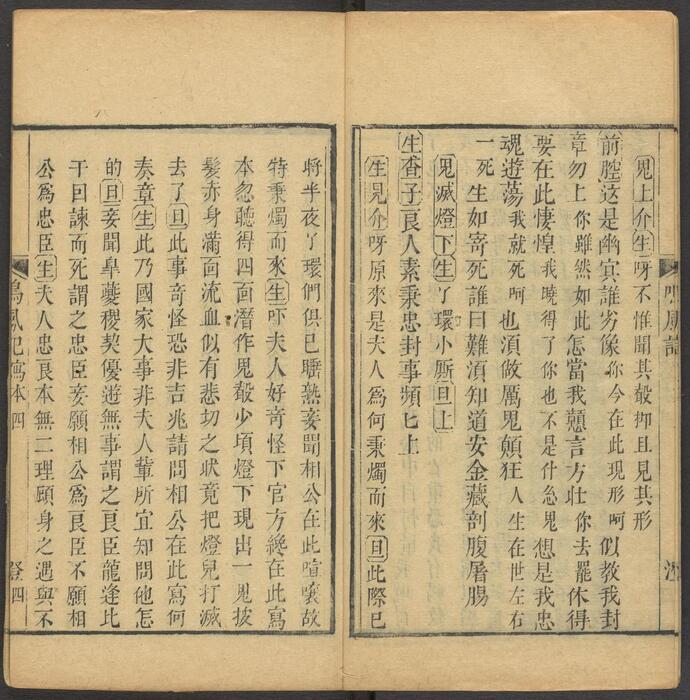 鬼上介生呀不惟聞其聲抑且見其形
前腔這是幽㝠誰劣像你今在此現形呵似教我封
章勿上你雖然如此怎當我戇言方壯你去罷休得
要在此悽惶我曉得了你也不是什急鬼想是我忠
魂遊蕩我就死呵也須做厲鬼顛狂人生在世左右
一死生如寄死誰曰難須知道安金藏剖腹屠腸
鬼滅燈下生丫環小廝旦上
生查子良人素秉忠封事頻匕上
生見介呀原來是夫人爲何秉燭而來旦此際已
將半夜丫環們俱已睡熟妾聞相公在此喧嚷故
特秉燭而來生吓夫人好奇怪下官方纔在此寫
本忽聽得四面潛作鬼聲少頃燈下現出一鬼披
髮赤身滿面流血似有悲切之狀竟把燈兒打滅
去了旦此事奇怪恐非吉兆請問相公在此寫何
奏章生此乃國家大事非夫人輩所宜知問他怎
的旦妾聞臯夔稷契優遊無事謂之良臣龍逄比
干回諫而死謂之忠臣妾願相公爲良臣不願相
公爲忠臣生夫人忠良本無二理顧身之遇與不
鳥鳳記寫本四
澄四